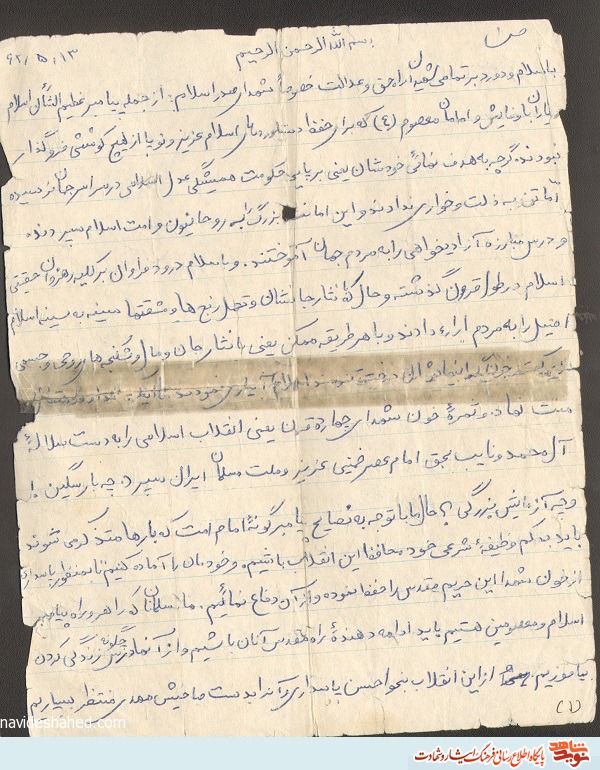 بسم الله الرحمن الرحیم
۶۲/۵/۱۳
با سلام و درود بر تمامی شهیدان راه حق و عدالت خصوصاً شهدای صدر اسلام: از جمله پیامبر عظیم الشأن اسلام
و یاران باوفایش و امامان معصوم (ع) که برای حفظ دستاوردهای اسلام عزیز و نوپا از هیچ کوششی فروگذار
نبودند. گرچه به هدف نهائی خودشان یعنی برپایی حکومت همیشگی عدل اسلامی در سراسر جهان نرسیده
اما تن به ذلت و خواری ندادند و این امانت بزرگ را به روحانیون و امت اسلام سپردند
و درس مبارزه آزادیخواهی را به مردم جهان آموختند. و با سلام و درود فراوان بر کلیه رهروان حقیقی
اسلام در طول قرون گذشته و حال که با نثار جانشان و تحمل رنج ها و مشقتها سینه به سینه اسلام
اصیل را به مردم ارائه دادند و با هر طریقه ممکن یعنی با نثار جان و مال و شکنجه های روحی و جسمی
درخت اسلام آبیاری خود
ست نهاد و ثمرهٔ خون شهدای چهارده قرن یعنی انقلاب اسلامی را به دست سلالهٔ
آل محمد و نایب بحق امام عصر خمینی عزیز و ملت مسلمان ایران سپرد. چه بار سنگین!
و چه آزمایش بزرگی؟ حال ما با توجه به نصایح پیامبرگونهٔ امام امت که بارها متذکر می شوند
باید به حکم وظیفهٔ شرعی خود محافظ این انقلاب باشیم. و خودمان را آماده کنیم تا بمنظور پاسداری
از خون شهدا این حریم مقدس را حفظ نموده و از آن دفاع نمائیم. ما مسلمانان که راهرو راه پیامبر
اسلام و معصومین هستیم باید ادامه دهندهٔ راه مقدس آنان باشیم و از آنها درس چگونه زندگی کردن
بیاموزیم از این انقلاب بنحو احسن پاسداری تا آنرا بدست صاحبش مهدی منتظر بسپاریم
(۱)
navideshahed.com
نوید شاهد
پایگاه اطلاع رسانی فرهنگ ایثار و شهادت